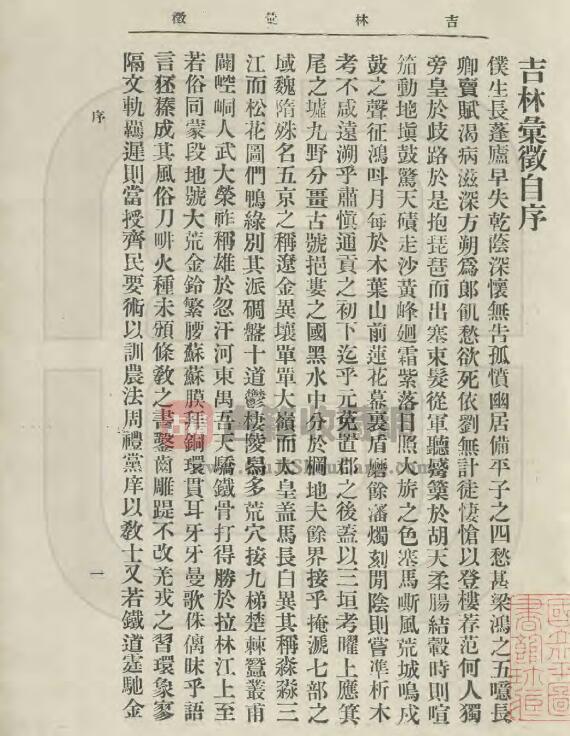 吉林彙徵
吉林彙徵自序
僕生長蓬廬早失乾陰深懷無告孤憤幽居備平子之四愁甚梁鴻之五噫長
卿賣賦渴病滋深方朔爲郎飢愁欲死依劉無計徙悽愴以登樓荐范何人獨
旁皇於歧路於是抱琵琶而出塞束髮從軍聽觱篥於胡天柔腸結轂時則喧
笳動地塡鼓驚天磧走沙黃峰廻霜紫落日照大旂之色寒馬嘶風荒城鳴戍
鼓之聲征鴻呌月每於木葉山前蓮花幕裏盾磨餘瀋燭刻閒陰則嘗準析木
考不咸遠溯乎肅愼通貢之初下迄乎元菟置郡之後蓋以三垣考曜上應箕
尾之墟九野分畺古號挹婁之國黑水中分於櫩地夫餘界接乎掩淲七部之
域魏隋殊名五京之稱遼金異壤單單大嶺而太皇蓋馬長白異其稱淼淼三
江而松花圖們鴨綠別其派碉盤十道鬱棲陵舃多荒穴接九梯楚棘蠶叢甫
闢崆峒人武大榮祚稱雄於忽汗河東禺吾天驕鐵骨打得勝於拉林江上至
若俗同蒙段地號大荒金鈴繫腰蘇蘇膜拜銅環貫耳牙牙曼歌侏僪昧乎語
言狉榛成其風俗刀畊火種未頒條敎之書鑿齒雕踶不改羌戎之習環象寥
隔文軌羈遲則當授齊民要術以訓農法周禮黨庠以敎士又若鐵道霆馳金
序
一